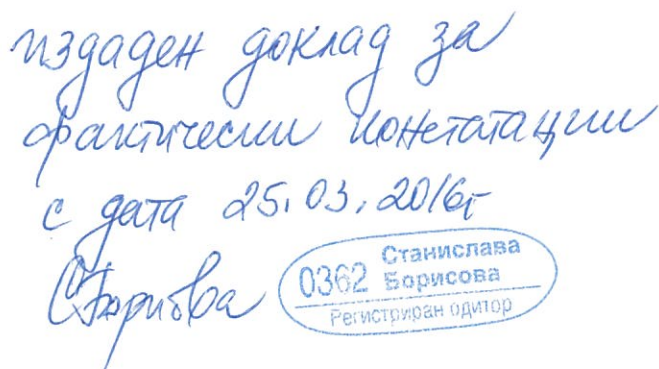 издаден доклад за
фактически констатации
с дата 25.03.2016г
СБорисова
0362 Станислава
Борисова
Регистриран одитор